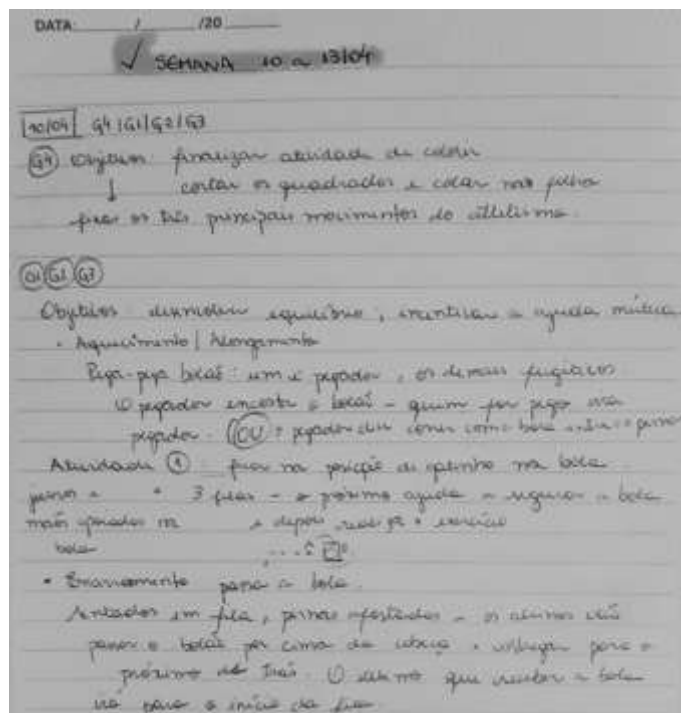 DATA: / /20
✓ SEMANA 10 a 13/04
10/04 G4 | G1 | G2 | G3
G4 Objetivo: finalizar atividade de colorir
↓ cortar os quadrados e colar na folha
os três principais movimentos do atletismo.
G1 G2 G3
Objetivos: desenvolver equilíbrio, incentivar a ajuda mútua
• Aquecimento | Alongamento
Pega-pega bolas: um é pegador, os demais fugitivos
O pegador encosta a bola - quem for pego vira
pegador. OU o pegador deve correr com a bola
Atividade 1: ficar na posição de na bola
3 filas - o próximo ajuda a segurar a bola
mãos apoiados na e depois realiza o exercício
bola
• para a bola.
Sentados em fila, pernas afastadas - os alunos vão
passar a bola por cima da cabeça e entregar para o
próximo de trás. O último que receber a bola
irá para o início da fila.